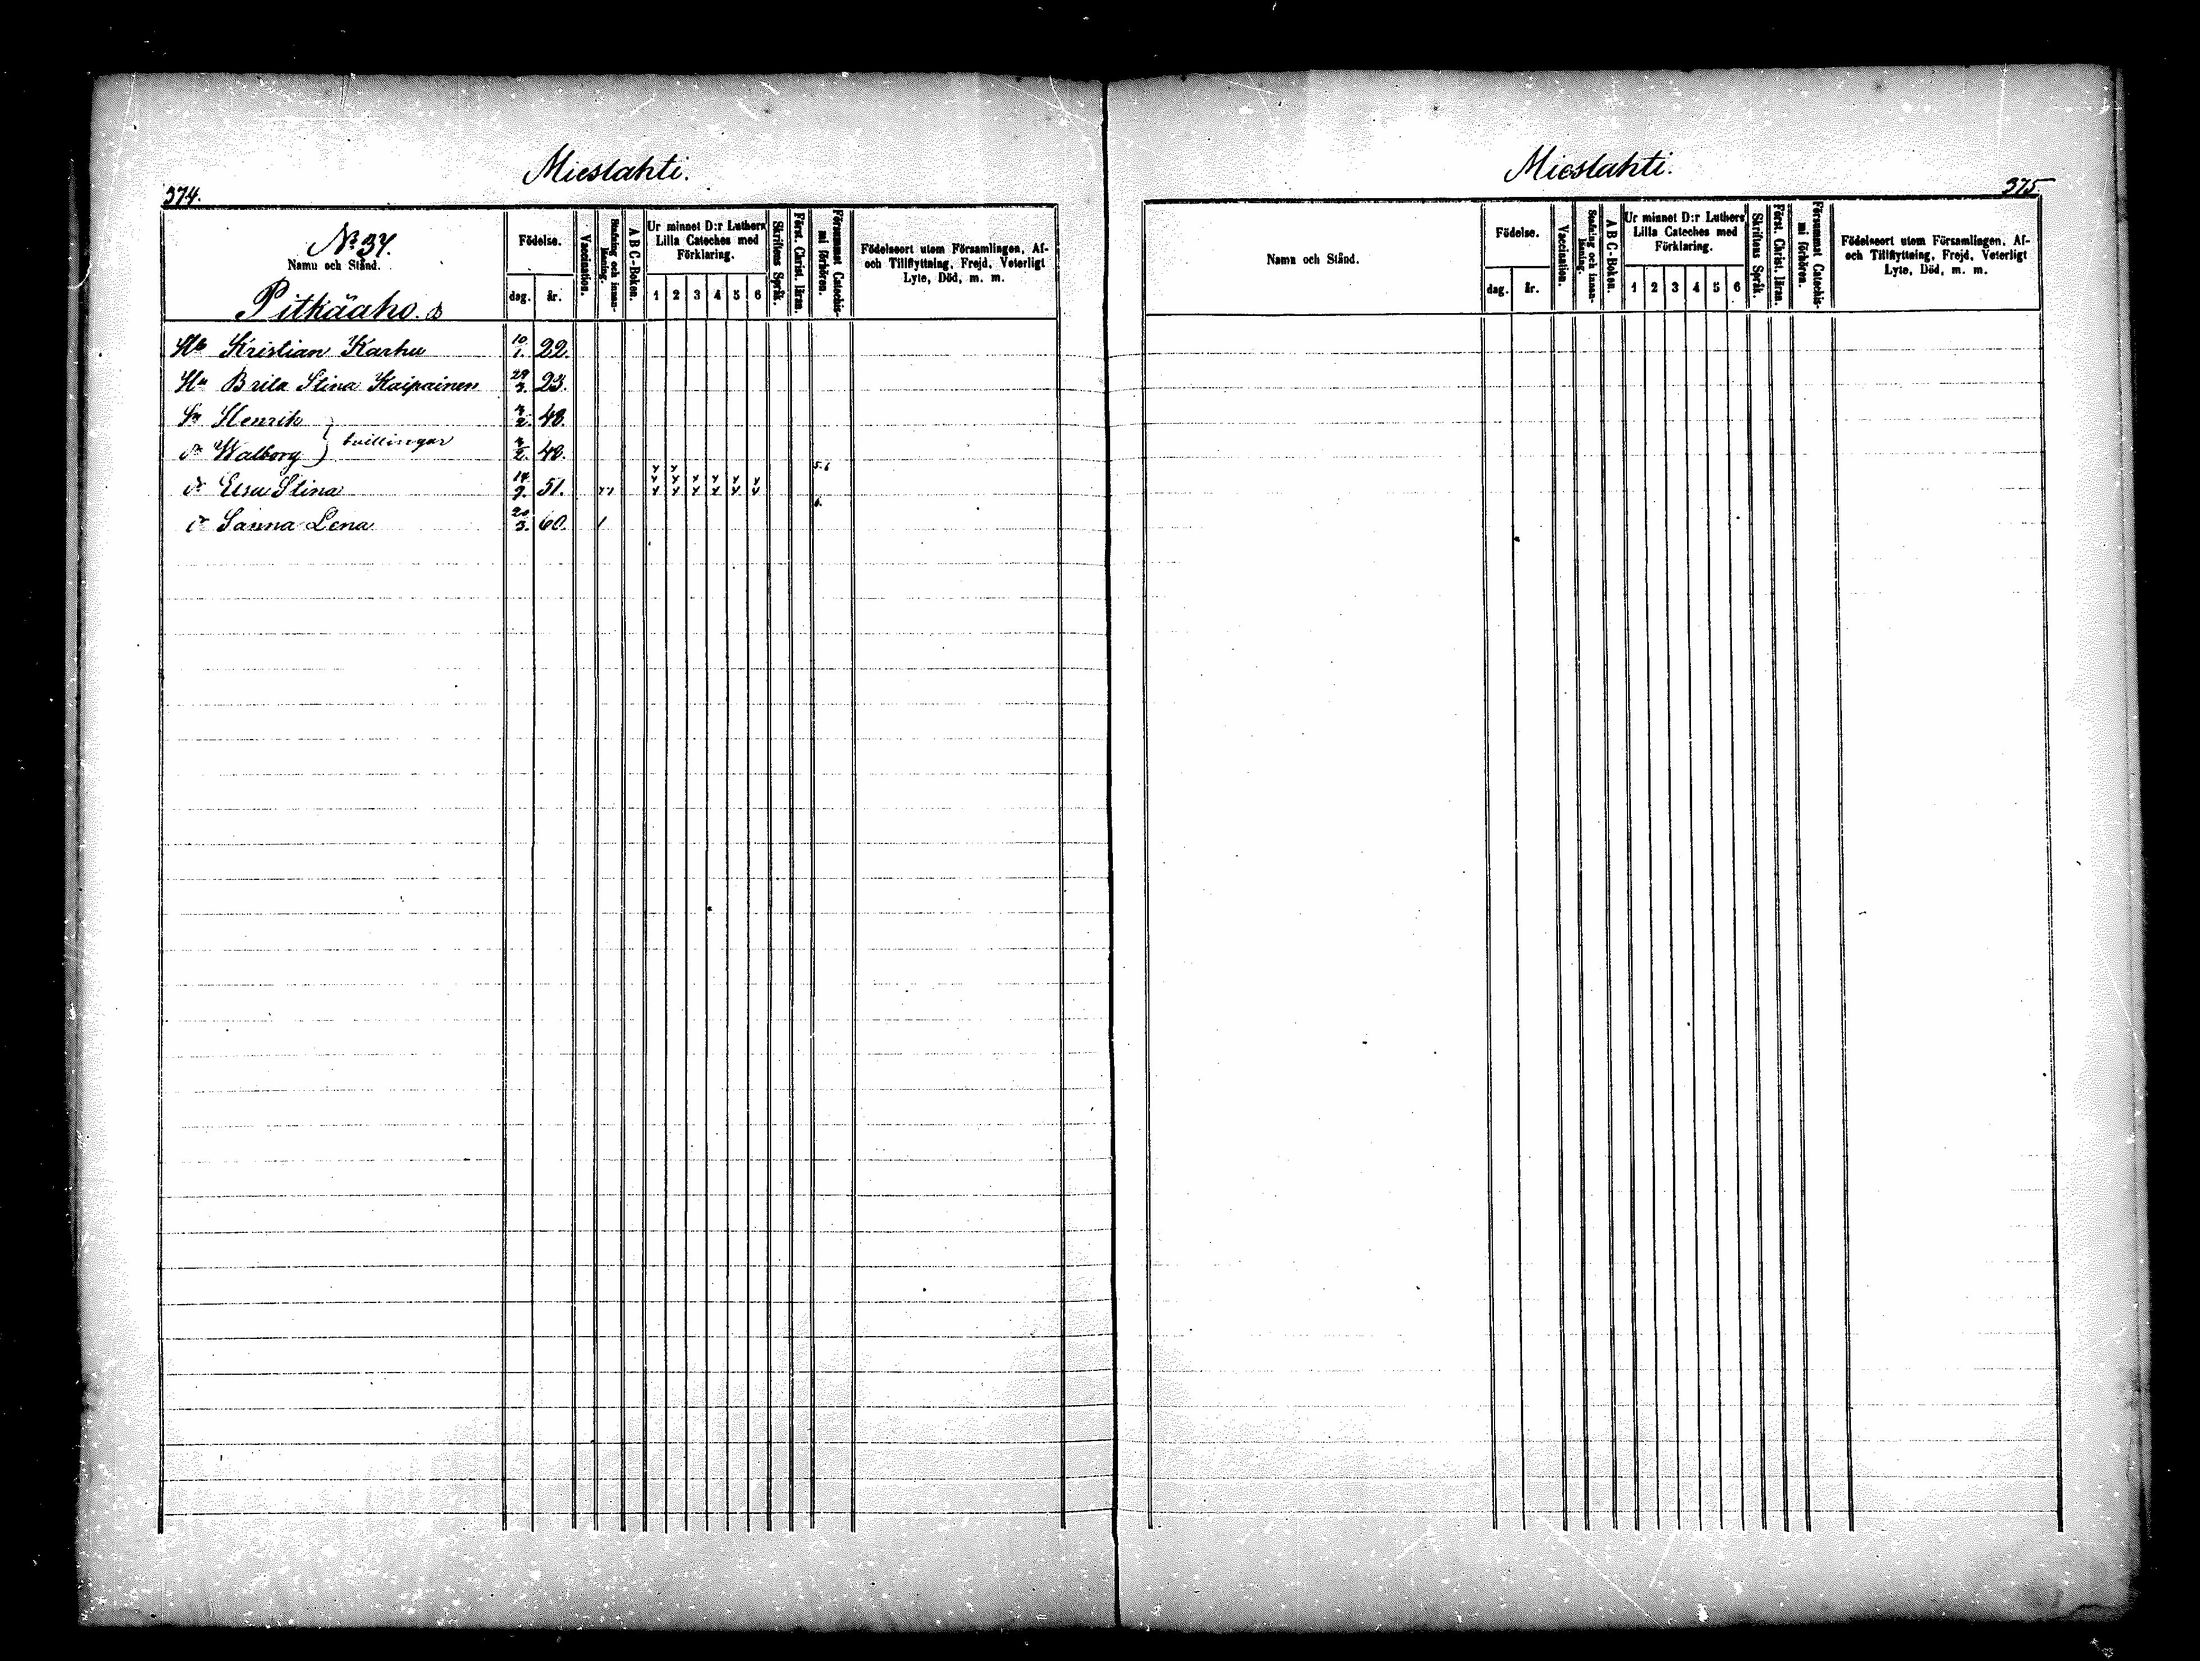 Mieslahti.
374.
No 37.
Namn och Stånd.
Pitkäaho. s
Födelse.
dag. år.
Vaccination.
Stafning och innan-läsning.
A B C-Boken.
Ur minnet D:r Luthers
Lilla Cateches med
Förklaring.
1 2 3 4 5 6
Skriftens Språk.
Först. Christ. läran.
Försummat Catechis-
mi förhören.
Födelseort utom Församlingen, Af-
och Tillflyttning, Frejd, Veterligt
Lyte, Död, m. m.
Kristian Karhu 10/1. 22.
Hu Brita Stina Kaipainen 29/3. 23.
Sn Henrik 48.
Walborg } tvillingar 48.
Elsa Stina 14/9. 51. 5.6
Sanna Lena 20/3. 60. 6.
Mieslahti.
375.
Namn och Stånd.
Födelse.
dag. år.
Vaccination.
Stafning och innan-läsning.
A B C-Boken.
Ur minnet D:r Luthers
Lilla Cateches med
Förklaring.
1 2 3 4 5 6
Skriftens Språk.
Först. Christ. läran.
Försummat Catechis-
mi förhören.
Födelseort utom Församlingen, Af-
och Tillflyttning, Frejd, Veterligt
Lyte, Död, m. m.